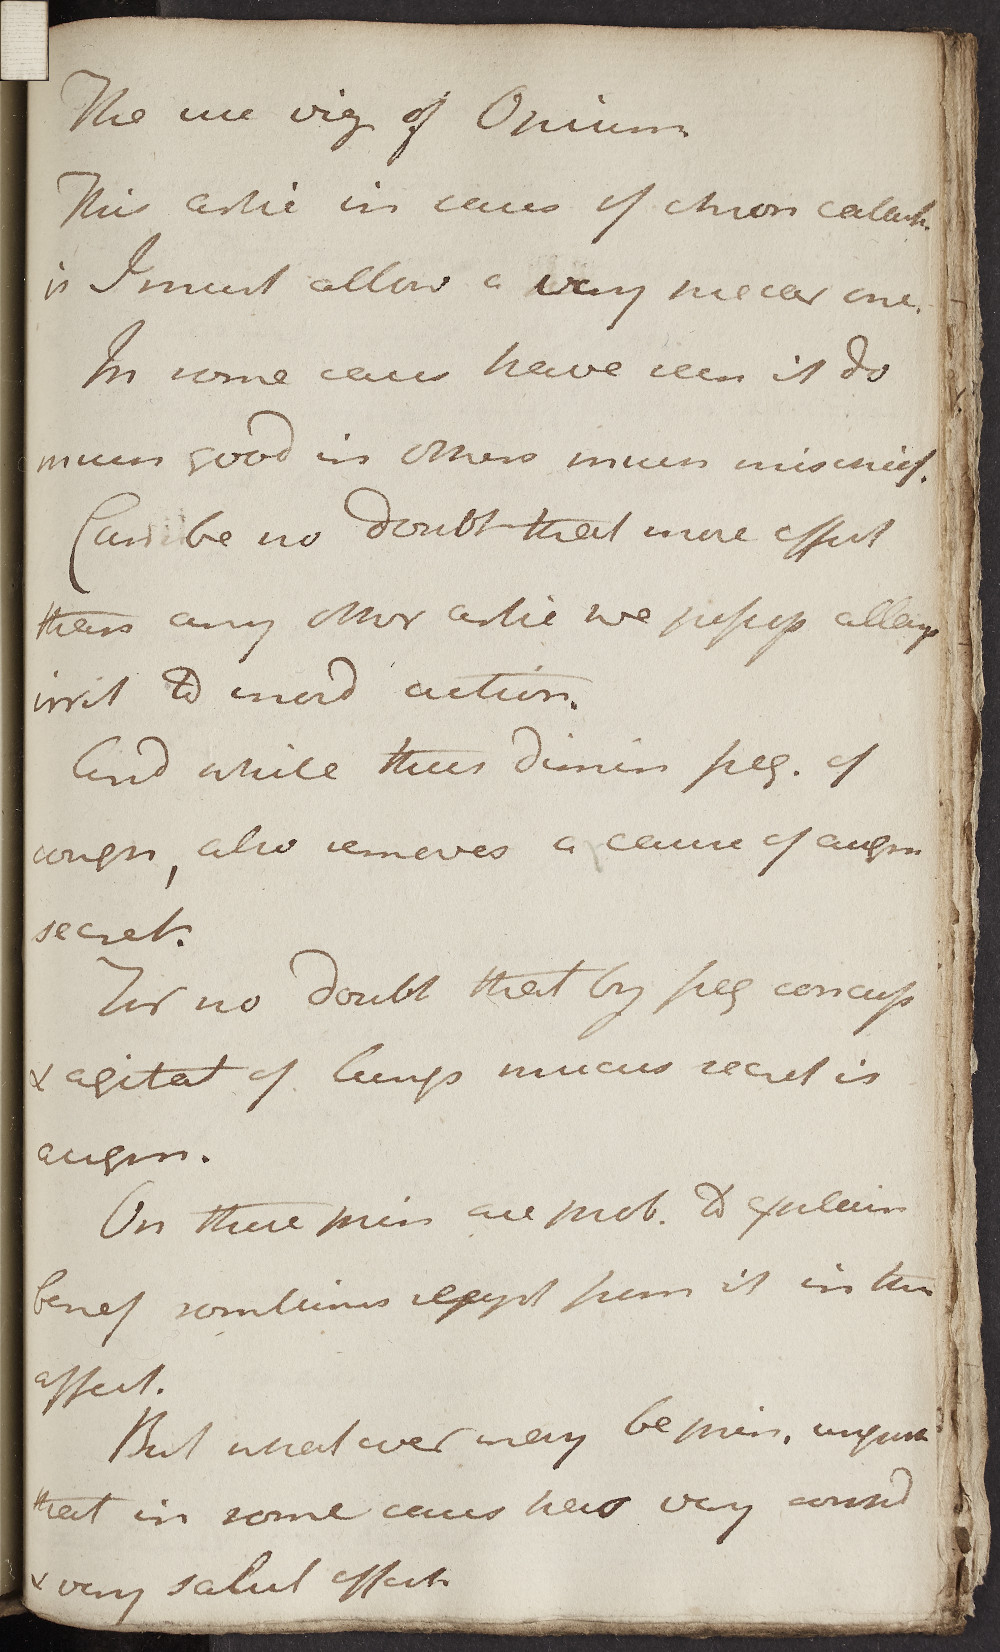 The use viz of Opium
This artic in cases of chron catarh.
is I must allow a very uncer one.
In some cases have seen it do
much good in others much mischief.
Can be no doubt that more effect
than any other artic we possess allay
irrit to mord action.
And while thus dimin freq. of
cough, also removes a cause of augm
secret.
For no doubt that by freq concuss
& agitat of lungs mucus secret is
augm.
On these prin are prob. to explain
benef sometimes from it in this
affect.
But whatever may be prin,
that in some cases has very consid
& very salut effect